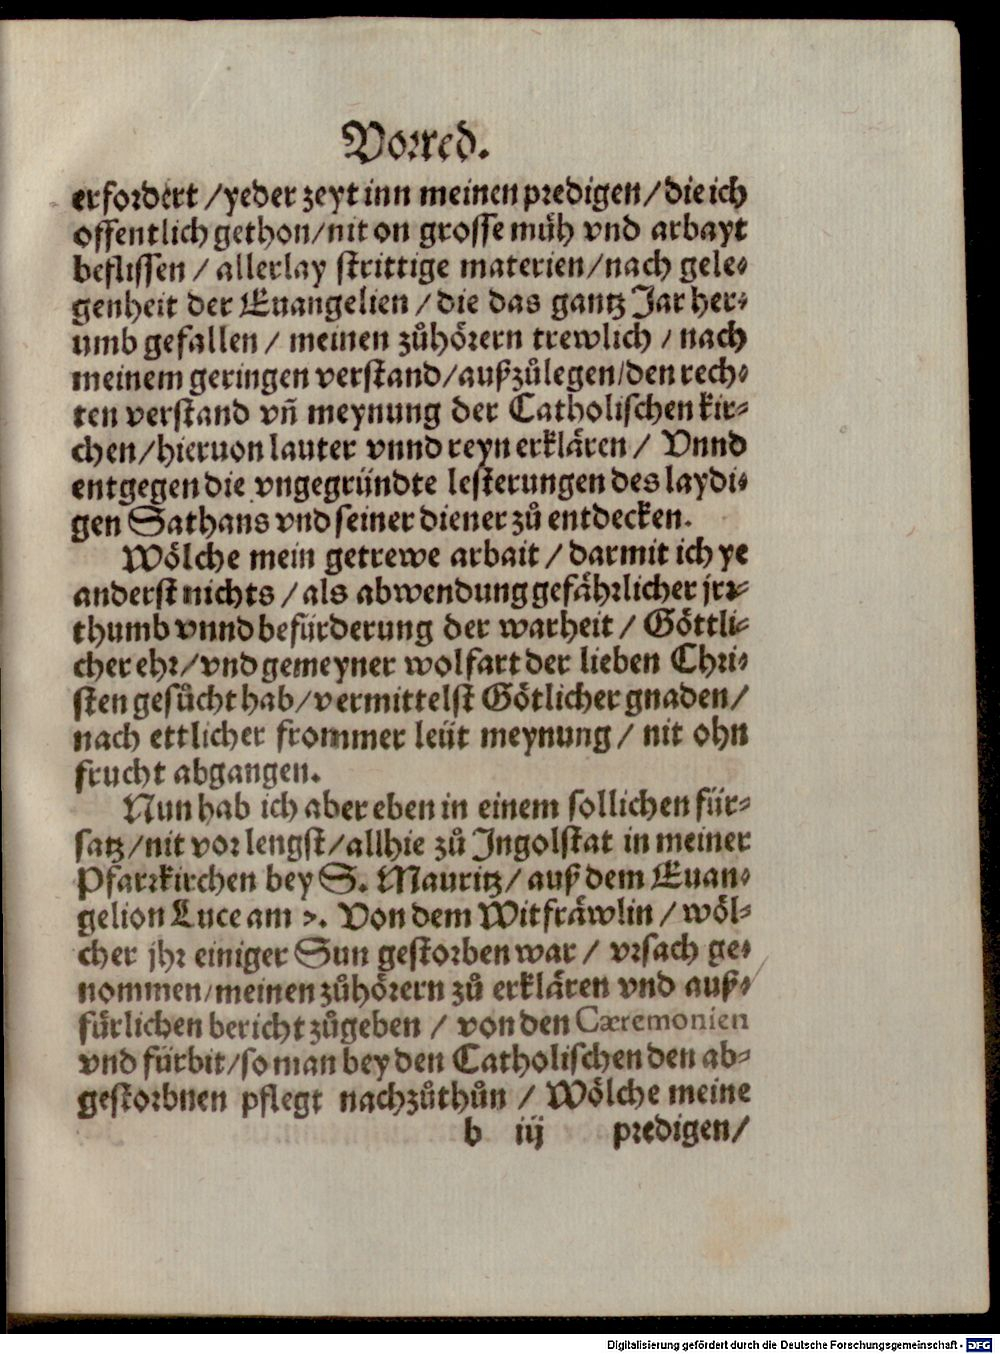 Vorred.
erfordert / yeder zeyt inn meinen predigen / die ich
offentlich gethon / nit on grosse müh vnd arbayt
beflissen / allerlay strittige materien / nach gele⸗
genheit der Euangelien / die das gantz Jar her⸗
umb gefallen / meinen zůhörern trewlich / nach
meinem geringen verstand / außzůlegen / den rech⸗
ten verstand vñ meynung der Catholischen kir⸗
chen / hieruon lauter vnnd reyn erklären / Vnnd
entgegen die vngegründte lesterungen des laydi⸗
gen Sathans vnd seiner diener zů entdecken.
Wölche mein getrewe arbait / darmit ich ye
anderst nichts / als abwendung gefährlicher jrr⸗
thumb vnnd befürderung der warheit / Göttli⸗
cher ehr / vnd gemeyner wolfart der lieben Chri⸗
sten gesůcht hab / vermittelst Götlicher gnaden /
nach ettlicher frommer leüt meynung / nit ohn
frucht abgangen.
Nun hab ich aber eben in einem sollichen für⸗
satz / nit vor lengst / allhie zů Ingolstat in meiner
Pfarrkirchen bey S. Mauritz / auß dem Euan⸗
gelion Luce am 7. Von dem Witfräwlin / wöl⸗
cher jhr einiger Sun gestorben war / vrsach ge⸗
nommen / meinen zůhörern zů erklären vnd auß⸗
fürlichen bericht zůgeben / von den Cæremonien
vnd fürbit / so man bey den Catholischen den ab⸗
gestorbnen pflegt nachzůthůn / Wölche meine
b iij predigen /
Digitalisierung gefördert durch die Deutsche Forschungsgemeinschaft - DFG